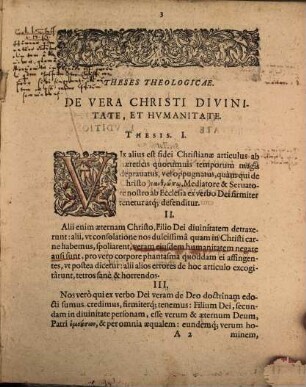 3
THESES THEOLOGICAE.
DE VERA CHRISTI DIVINI-
TATE, ET HVMANITATE.
THESIS. I.
VIx alius est fidei Christianæ articulus ab
hæreticis quorumuis temporum magis
deprauatus, vel oppugnatus, quàm qui de
Christo Mediatore & Seruatore
nostro ab Ecclesia ex verbo Dei firmiter
tenetur atq; defenditur.
II.
Alii enim æternam Christo, Filio Dei diuinitatem detraxe-
runt: alii, vt consolatione nos dulcissima quam in Christi car-
ne habemus, spoliarent, veram eiusdem humanitatem negare
ausi sunt, pro vero corpore phantasma quoddam ei affingen-
tes, vt postea dicetur: alii alios errores de hoc articulo excogi-
târunt, tetros sanè & horrendo-
III.
Nos verò qui ex verbo Dei veram de Deo doctrinam edo-
cti sumus credimus, firmiterq; tenemus: Filium Dei, secun-
dam in diuinitate personam, esse verum & æternum Deum,
Patri ὁμοούσιον, & per omnia æqualem: eundemq; verum ho-
A 2 minem,